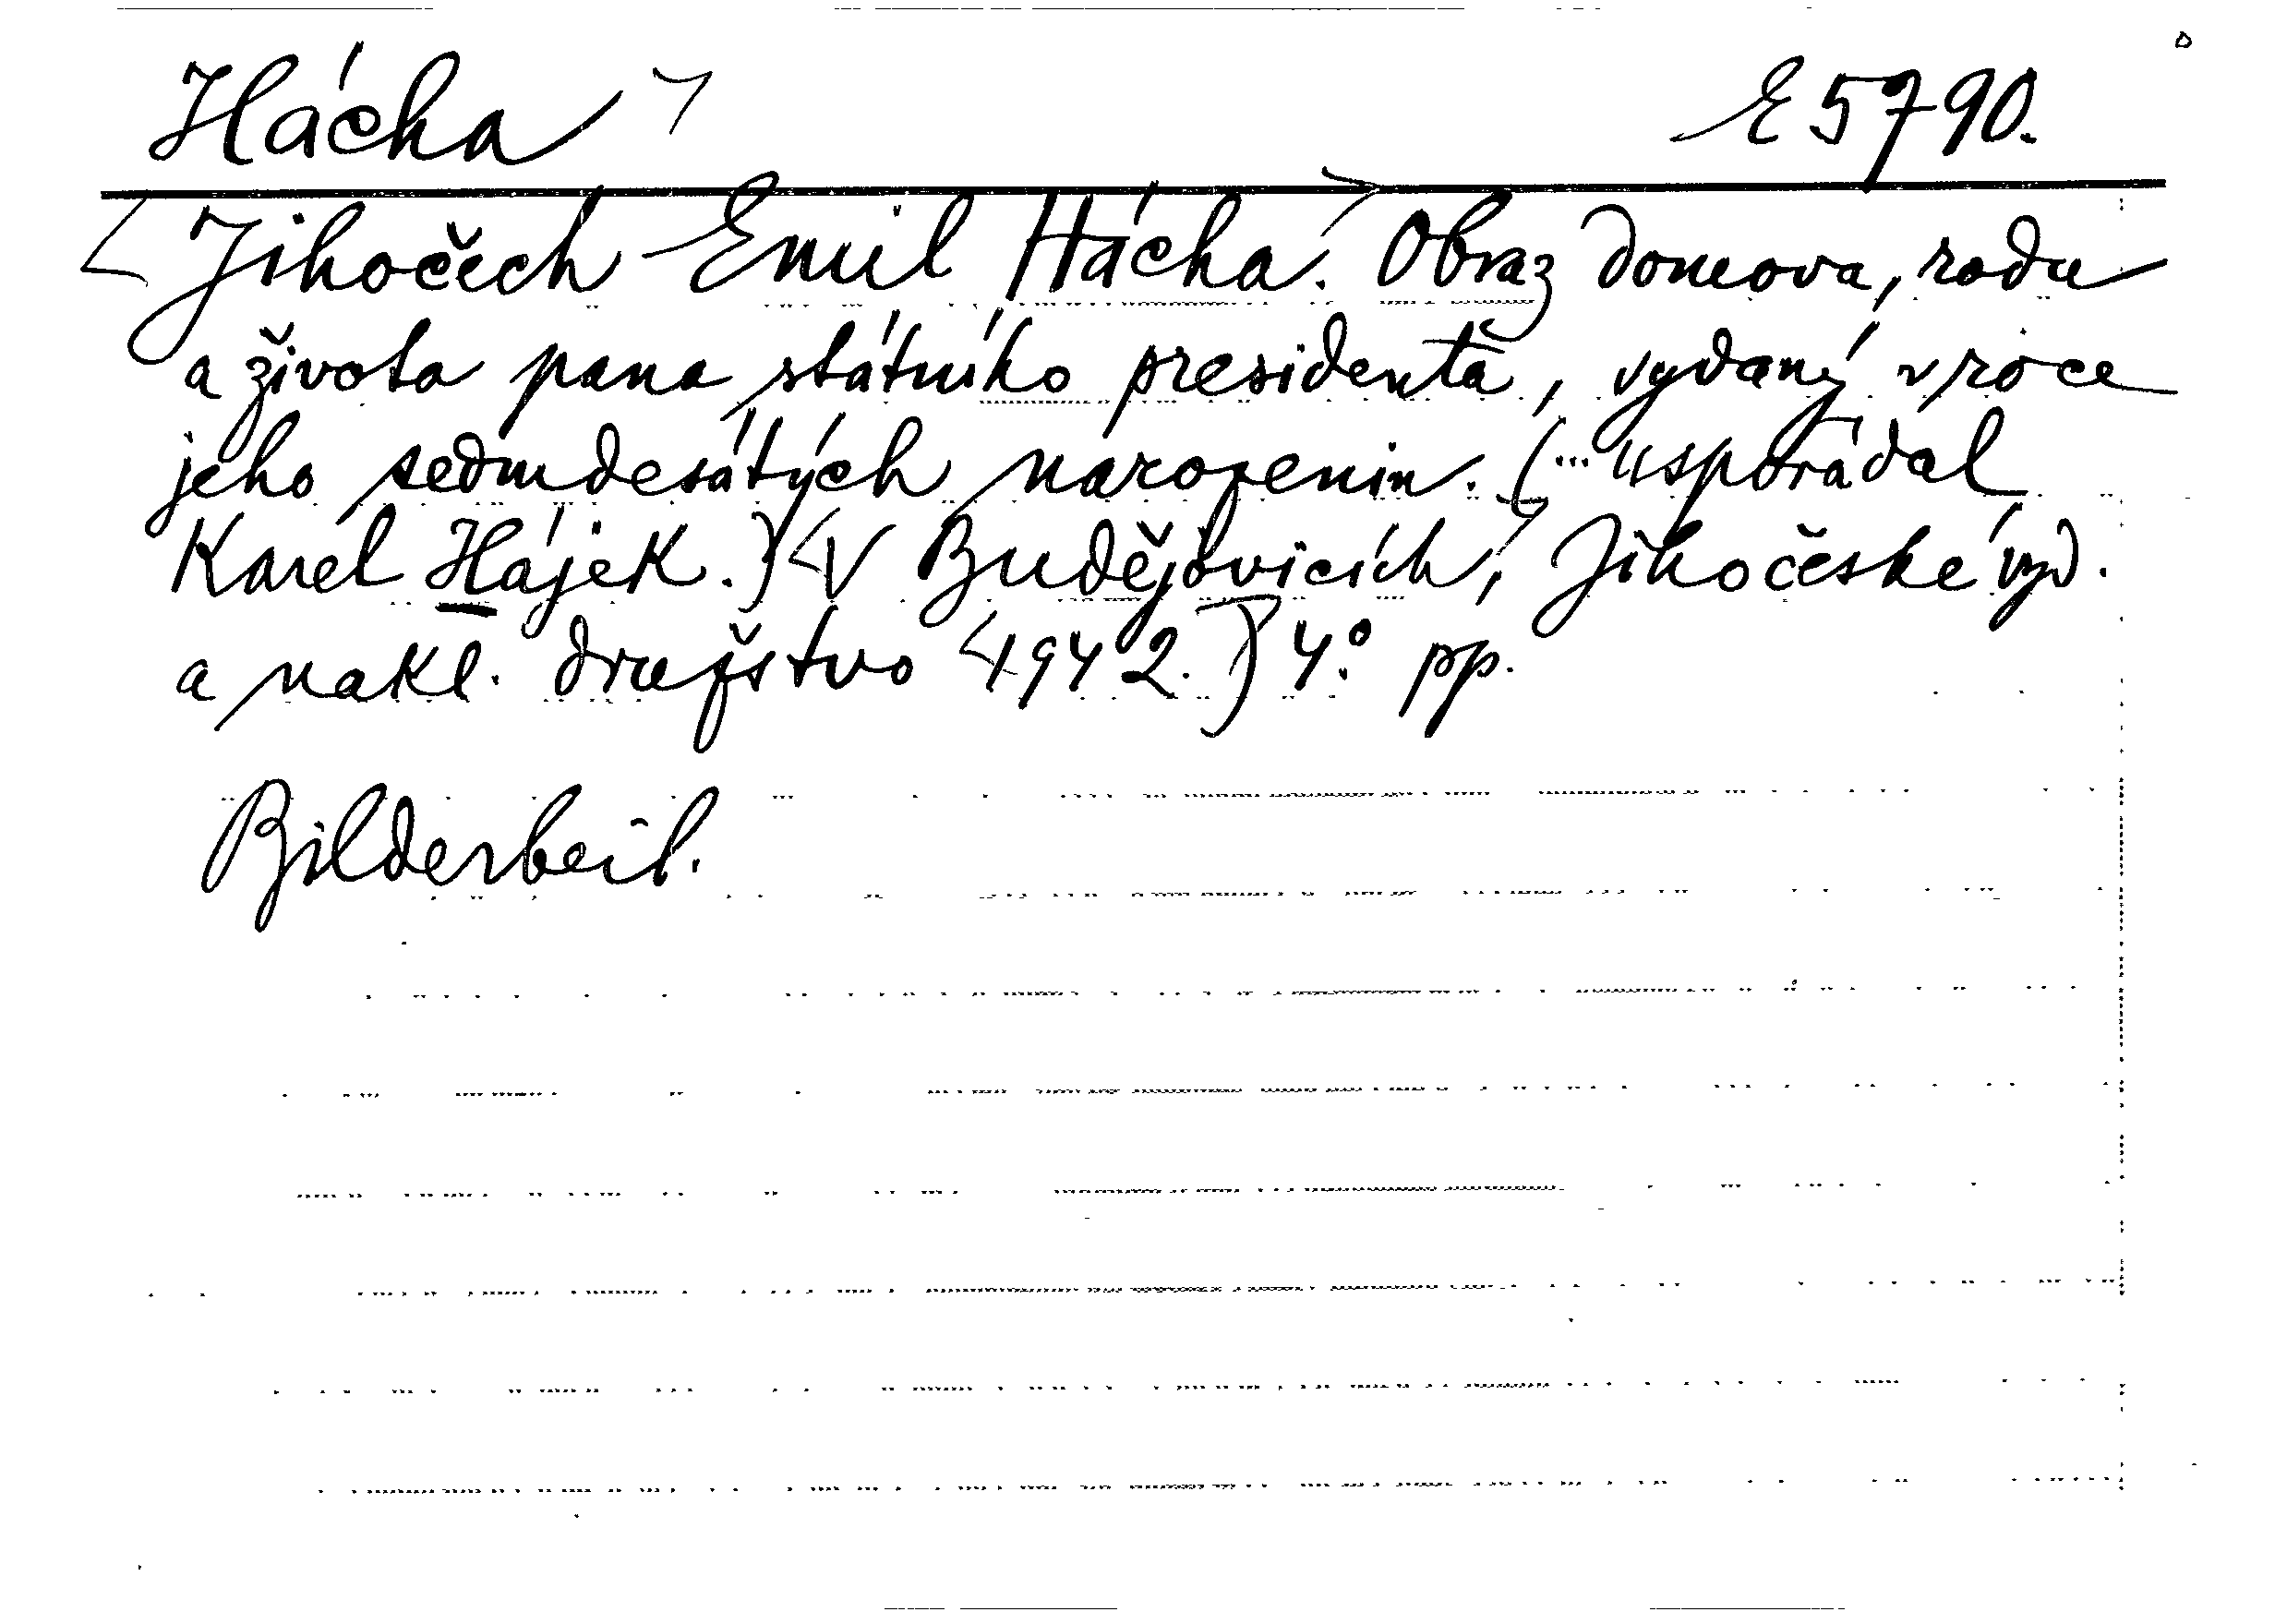 Hácha E 5790.
Jihočech Emil Hácha. Obraz domova, rodu
a života pana státního presidenta, vydaný v roce
jeho sedmdesátých narozenin. (... uspořádal
Karel Hájek.) V Budějovicích, Jihočeské vyd.
a nakl. družstvo 1942.) 4° pp.
Bilderbeil.